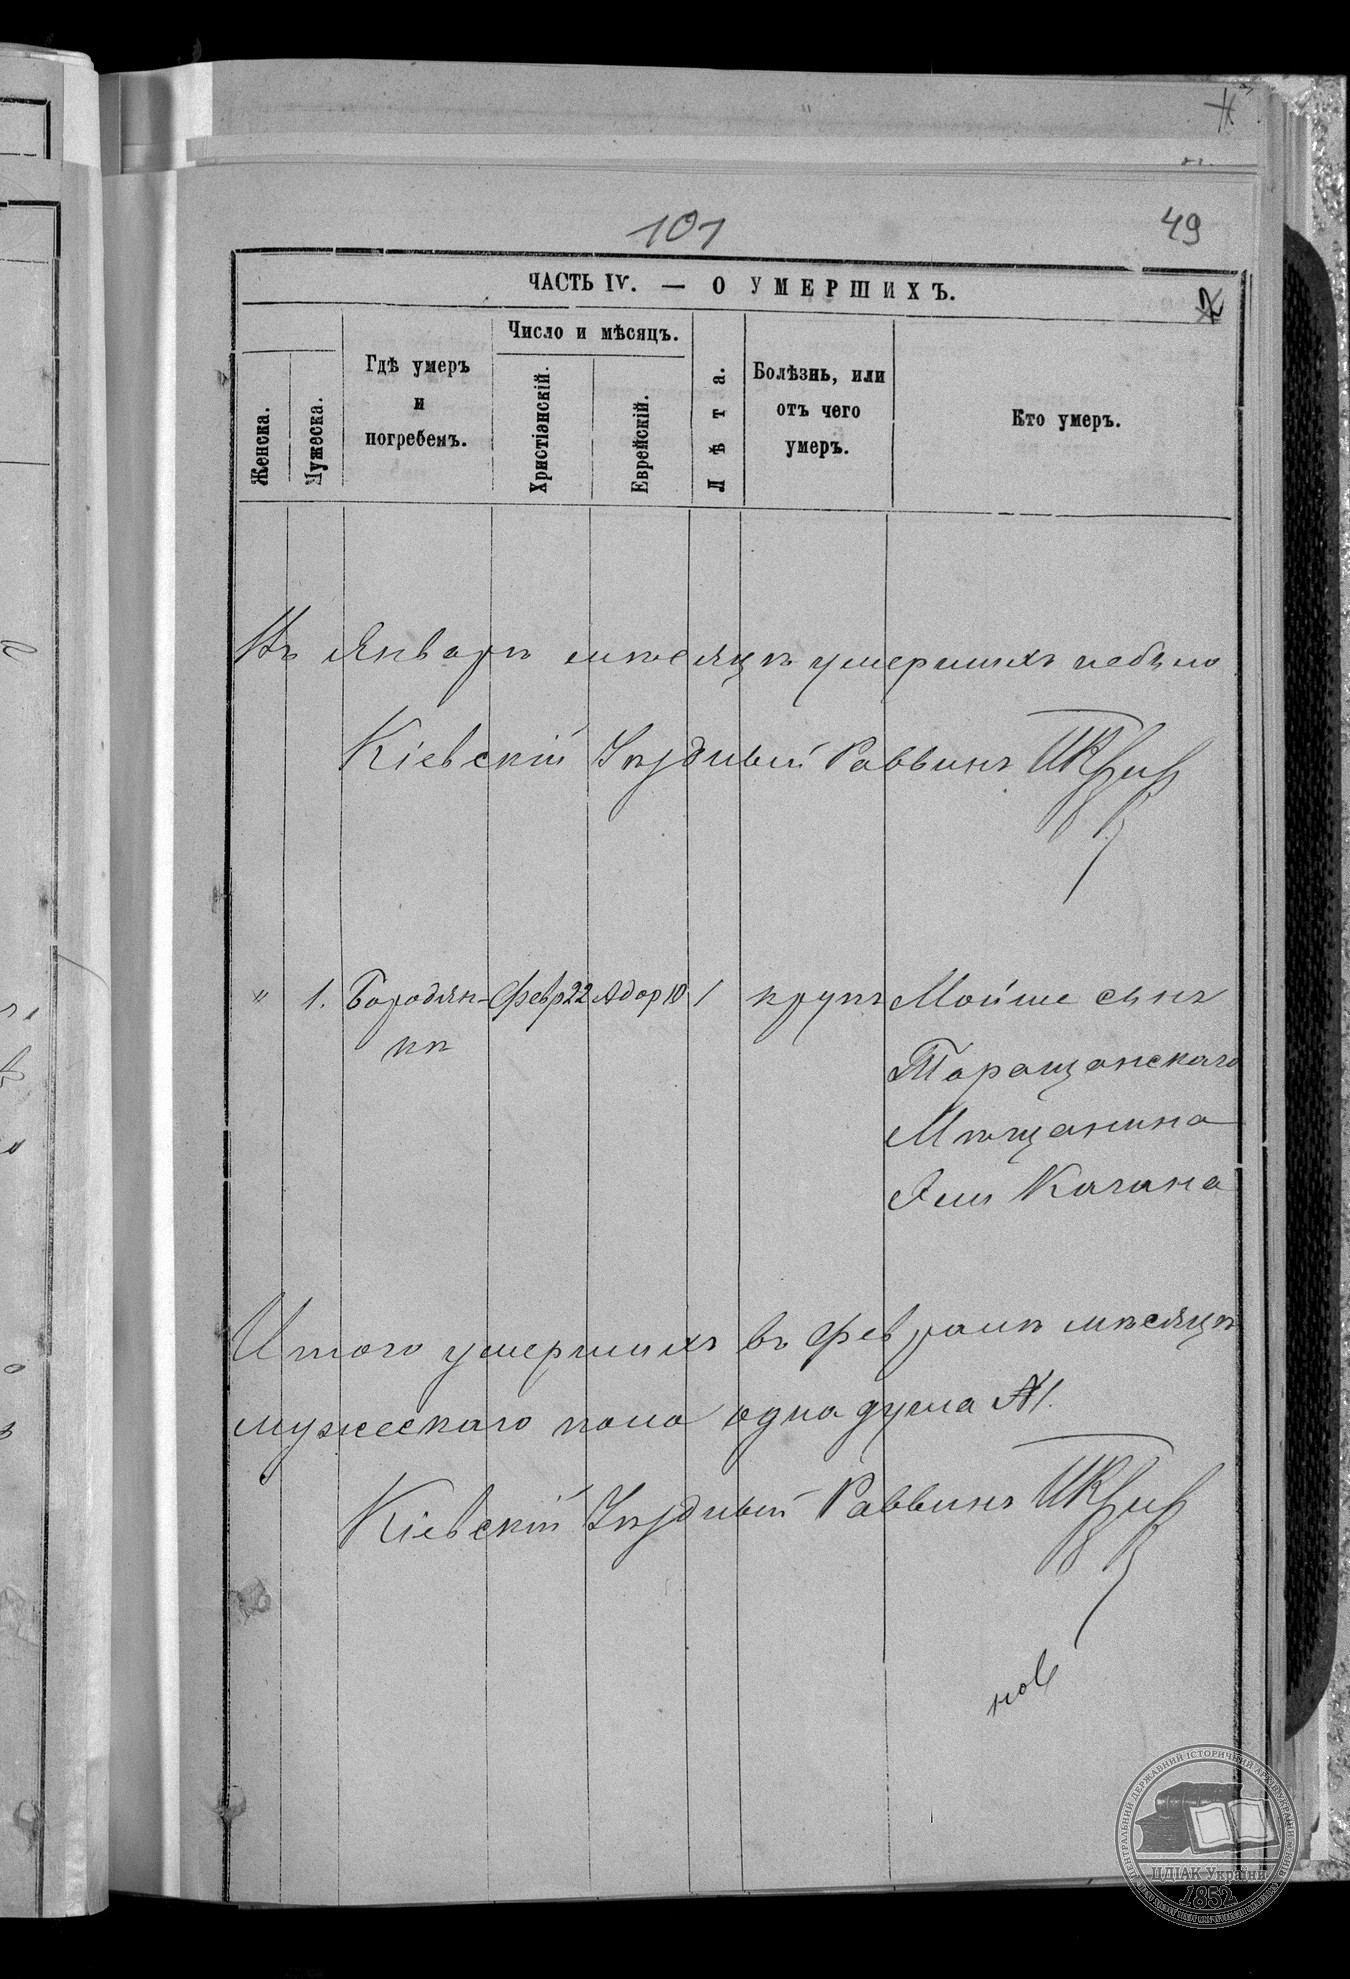 101
49
ЧАСТЬ IV. — О УМЕРШИХЪ.
Женска.
Мужеска.
Гдѣ умеръ
и
погребенъ.
Число и мѣсяцъ.
Христіанскій.
Еврейскій.
Лѣта.
Болѣзнь, или
отъ чего
умеръ.
Кто умеръ.
Въ Январѣ мѣсяцѣ умершихъ небыло
Кіевскій Уѣздный Раввинъ
" 1. Бородян- Февр 22 Адар 10 1 крупъ Мойше сынъ
кѣ Таращанскаго
Мѣщанина
Эли Кагана
Итого умершихъ въ Февралѣ мѣсяцѣ
мужескаго пола одна душа №1.
Кіевскій Уѣздный Раввинъ
ЦЕНТРАЛЬНИЙ ДЕРЖАВНИЙ ІСТОРИЧНИЙ АРХІВ УКРАЇНИ
ЦДІАК України
1852